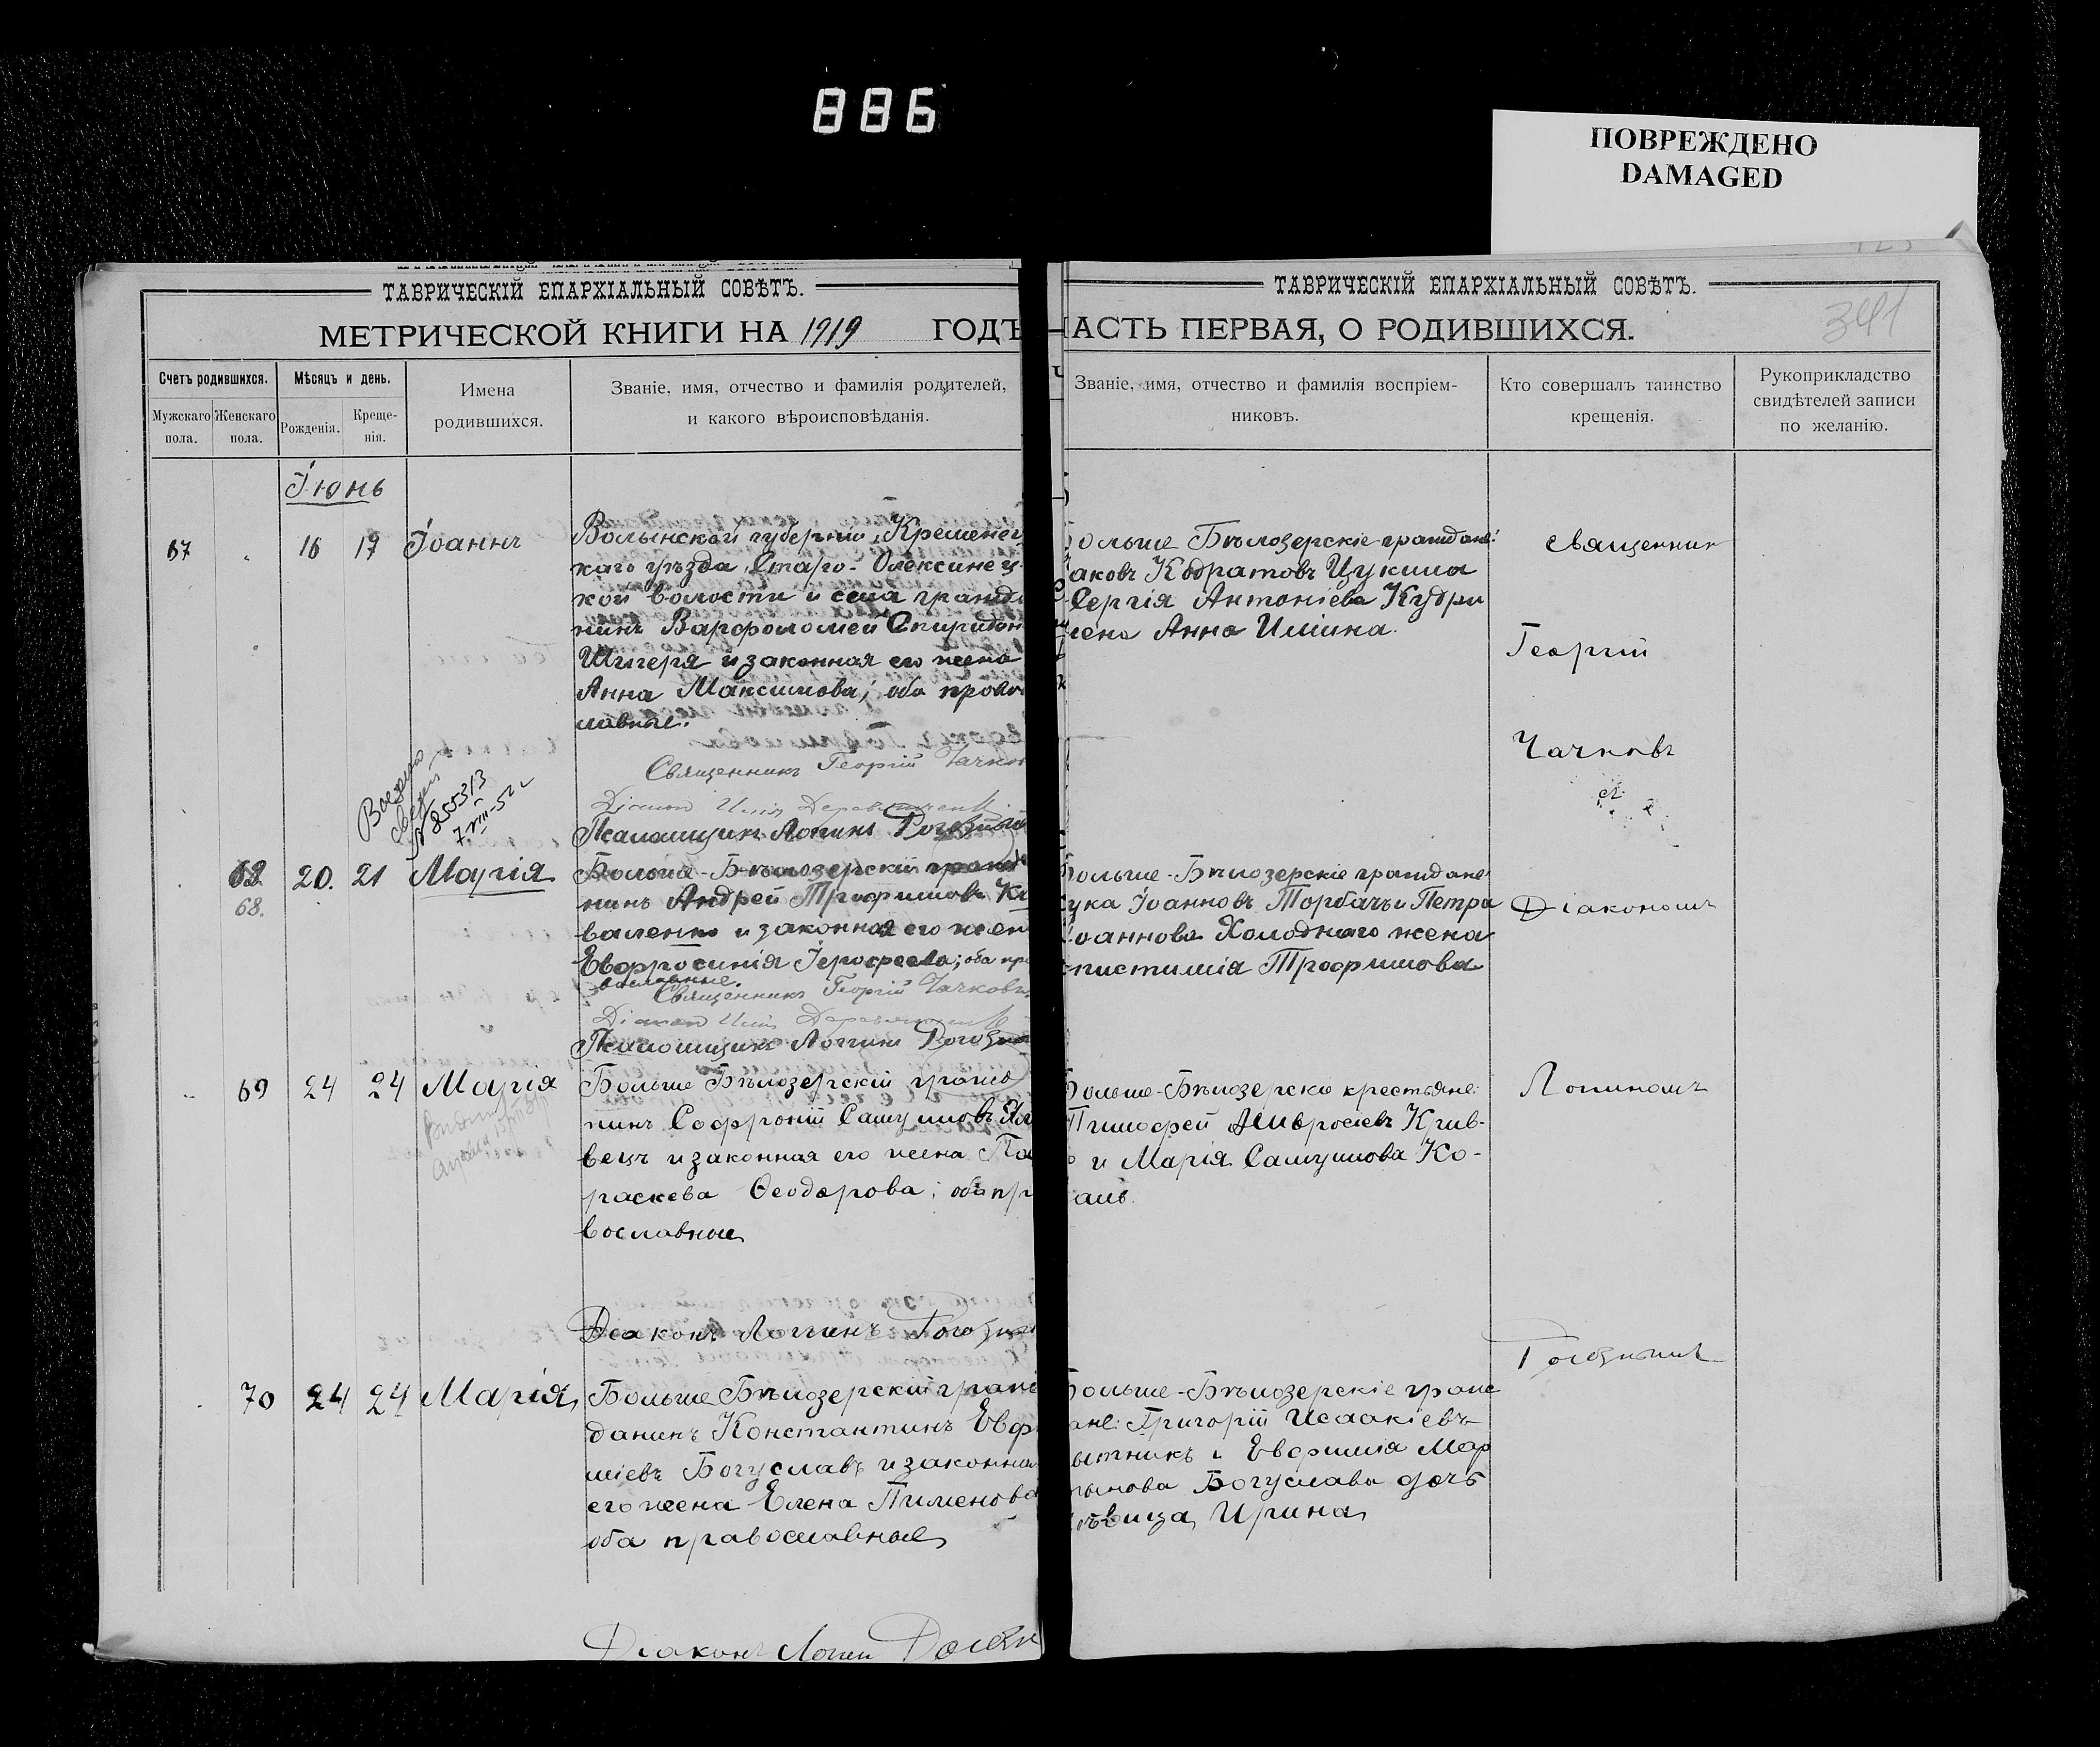 886
ПОВРЕЖДЕНО
DAMAGED
ТАВРИЧЕСКІЙ ЕПАРХІАЛЬНЫЙ СОВѢТЪ.
МЕТРИЧЕСКОЙ КНИГИ НА 1919 ГОДЪ
Счетъ родившихся.
Мужскаго пола.
Женскаго пола.
Мѣсяцъ и день.
Рожденія.
Креще-
нія.
Имена
родившихся.
Званіе, имя, отчество и фамилія родителей,
и какого вѣроисповѣданія.
Іюнь
67 16 17 Іоаннъ
Волынской губерніи, Кременец
каго уѣзда, Старо-Олексинец
кой волости и села гражда
нинъ Варфоломей Спиридон
и законная его жена
Анна Максимова; оба право
славные.
Священникъ Георгій Чачков
Діакон
Псаломщикъ Логинъ
№ 255313
68. 20. 21 Марія
Больше-Бѣлозерскій гражда
нинъ Андрей Трофимовъ Ко
валенко и законная его жен
Евфросинія Іерофеева; оба пра
вославные.
Священникъ Георгій Чачковъ
Діакон
Псаломщикъ Логинъ
69 24 24 Марія
Больше Бѣлозерскій гражд
нинъ Софроній
вецъ и законная его жена Па
раскева Ѳеодорова; оба пра
вославные
Діаконъ Логгинъ
70 24 24 Марія
Больше Бѣлозерскій граж
данинъ Константинъ Евф
міевъ Богуславъ и законная
его жена Елена Пименова
оба православные
Діаконъ Логин
ТАВРИЧЕСКІЙ ЕПАРХІАЛЬНЫЙ СОВѢТЪ.
ЧАСТЬ ПЕРВАЯ, О РОДИВШИХСЯ.
341
Званіе, имя, отчество и фамилія воспріем-
никовъ.
Кто совершалъ таинство
крещенія.
Рукоприкладство
свидѣтелей записи
по желанію.
ольше Бѣлозерскіе граждане:
аковъ Кодратовъ
Сергія Антоніева Кудри
жена Анна
Священник
Георгій
Чачковъ
Больше-Бѣлозерскіе граждане
ука Іоанновъ Торбачъ и Петра
Іоаннова Холоднаго жена
пистимія Трофимова
Діакономъ
Больше-Бѣлозерскіе крестьяне:
Тимофей Амвросіевъ Крив-
о и Марія Ко-
аль.
Логиномъ
Больше-Бѣлозерскіе граж
ане: Григорій Исаакіевъ
ытникъ и Евфимія Мар
тынова Богуслава дочь
дѣвица Ирина